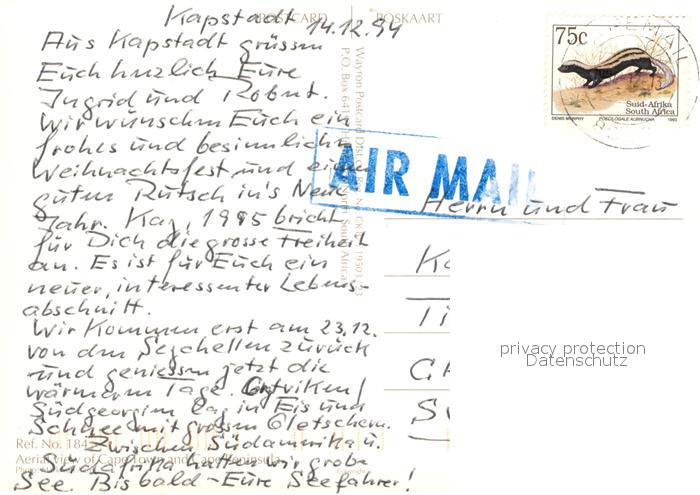 Kapstadt 14.12.94
POSTCARD POSKAART
Aus Kapstadt grüssen
Euch herzlich Eure
Ingrid und Robert.
Wir wünschen Euch ein
frohes und besinnliches
Weihnachtsfest und einen
guten Rutsch in's Neue
Jahr. Kay, 1995 bricht
für Dich die grosse Freiheit
an. Es ist für Euch ein
neuer, interessenter Lebens-
abschnitt.
Wir kommen erst am 23.12.
von den Seychellen zurück
und geniessen jetzt die
wärmeren Tage. Grytviken/
Südgeorgien lag in Eis und
Schnee mit grossen Gletschern.
Zwischen Südamerika u.
Südafrika hatten wir grobe
See. Bis bald - Eure Seefahrer!
Ref. No. 184
Aerial view of Cape Town and Cape Peninsula
Wayron Postcard
P.O. Box 641
South Africa
75c
Suid-Afrika
South Africa
DENIS MURPHY POECILOGALE ALBINUCHA 1993
AIR MAIL
Herrn und Frau
privacy protection
Datenschutz